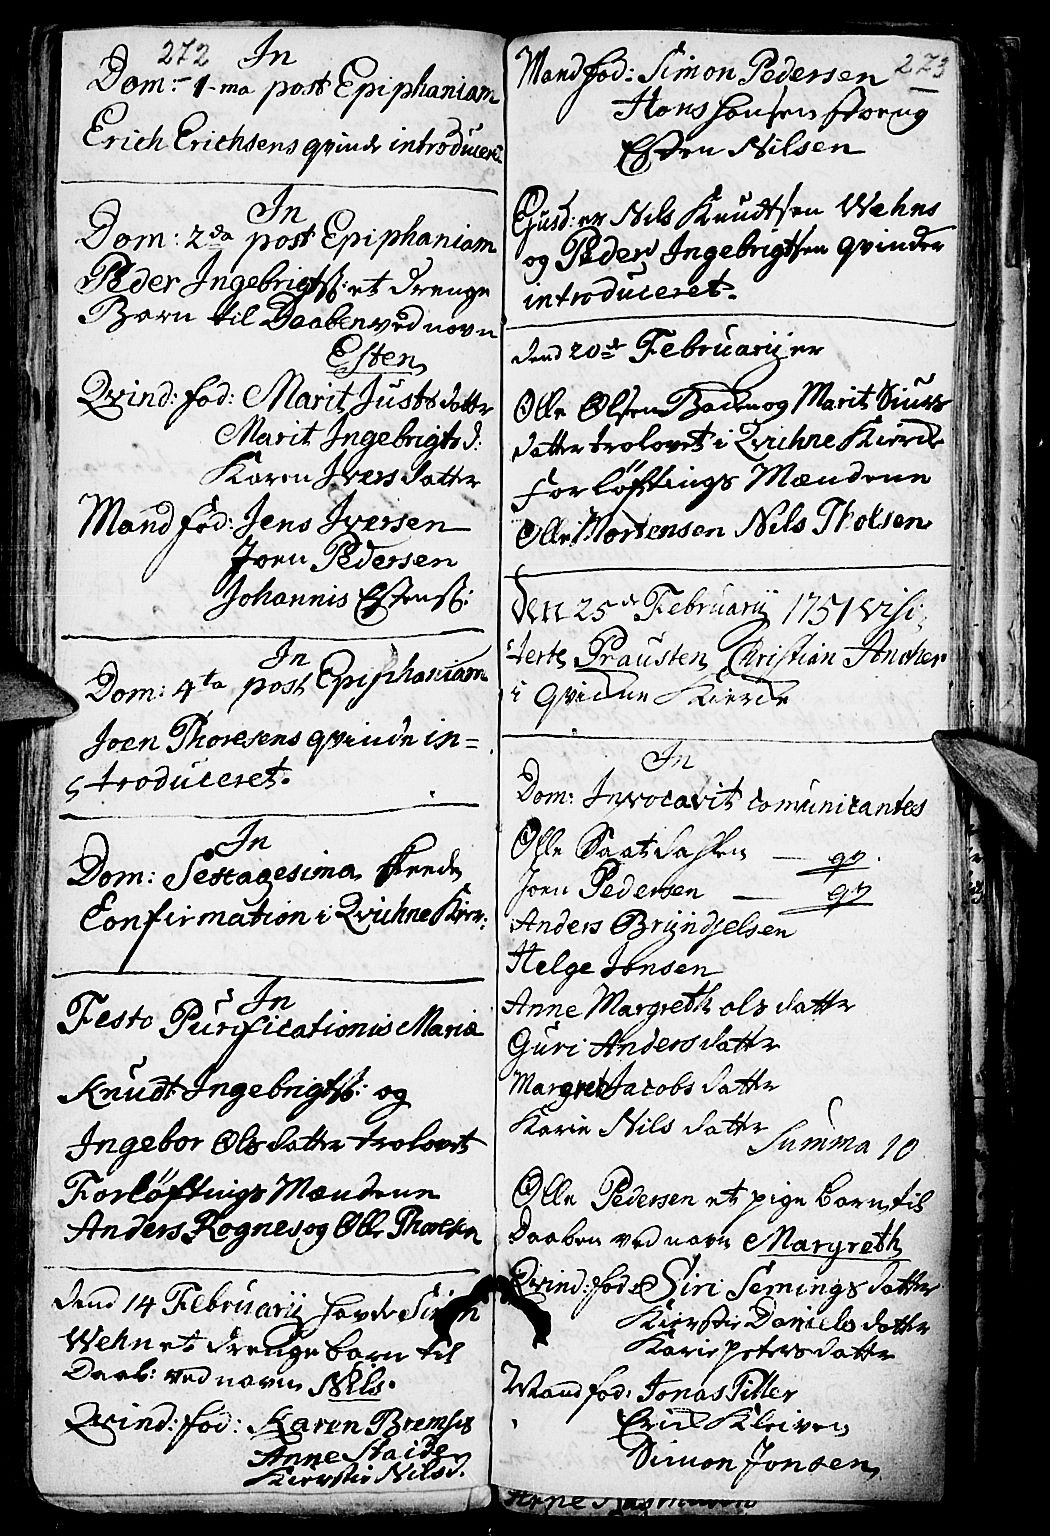 272
In
Dom: 1-ma post Epiphaniam
Erich Erichsens qvinde introduceret
In
Dom: 2da post Epiphaniam
Peder Ingebrigtß: et drenge
Barn til Daaben ved navn
Esten
Qvind: fad: Marit Justsdatter
Marit Ingebrigts d:
Karen Ivers datter
Mand fad: Jens Iversen
Joen Pedersen
Johannis Estensß:
In
Dom: 4ta post Epiphaniam
Joen Thoresens qvinde in=
troduceret.
In
Dom: Sexagesima skeede
Confirmation i Qvichne Kier:
In
Festo Purificationis Mariæ
Knudt Ingebrigtß: og
Ingebor Ols datter trolovet
Forløftnings Mændene
Anders Rognes og Olle Thoresen
Dend 14 Februarij havde Simon
Wehn et drenge barn til
Daab: ved navn Nils.
Qvind: fad: Karen Bremses
Anne Staide
Kierstie Nilsd.
273
Mand fad: Simon Pedersen
Hans Hansen
Esten Nilsen
Ejusd: er Nils Knudtsen Wehns
og Peder Ingebrigtsen qvinder
introduceret.
Dend 20de Februarij er
Olle Olsen og Marit Siurs
datter trolovet i Qvichne Kierke
Forløftnings Mændene
Olle Mortensen Nils Tholsen
Den 25de Februarij 1751 visi
terte Prausten Christian Ancher
i Qvichne Kierke
In
Dom: Invocavit comunicantes
Olle
Joen Pedersen
Anders Bryndjelsen
Helge Jonsen
Anne Margreth ols datter
Guri Anders datter
Margret Jacobs datter
Karie Nils datter
Summa 10
Olle Pedersen et pige barn til
Daaben ved navn Margreth
Qvind: fad: Siri Semings datter
Kierstie Daniels datter
Karie Peters datter
Mand fad: Jonas Piller
Erich Kleiven
Simon Jonsen
Arne Rasmusen